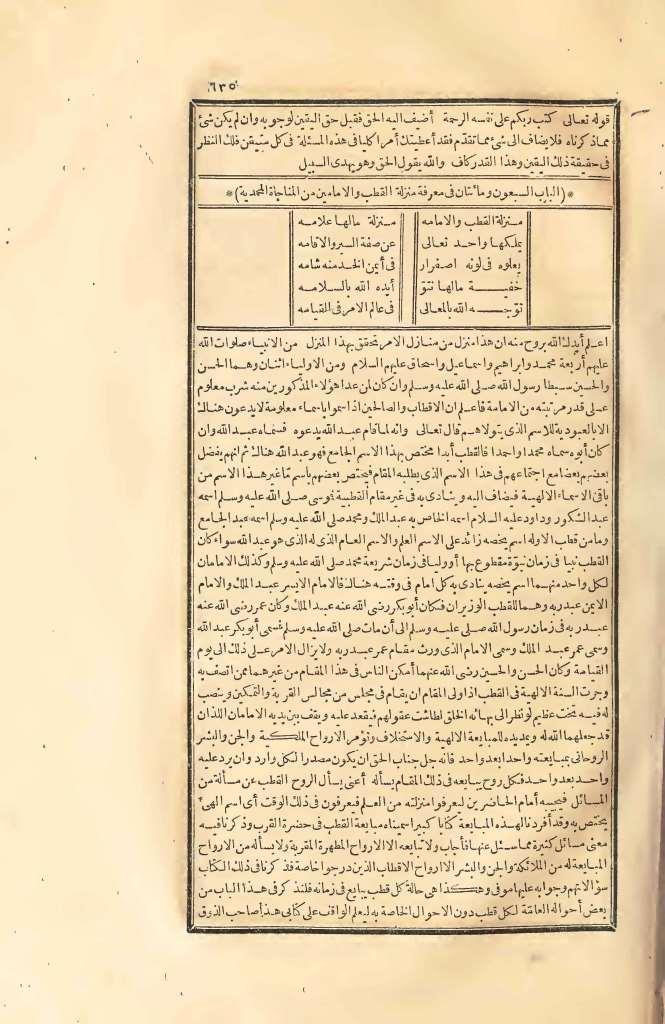 ٦٣٥
قوله تعالى كتب ربكم على نفسه الرحمة أضيف اليه الحق فقبل حق اليقين لوجوبه وان لم يكن شئ
مماذكرناه فلايضاف الى شئ مما تقدّم فقد أعطيتك أمرا كليا فى هذه المسئلة فى كل متيقن فلك النظر
فى حقيقة ذلك اليقين وهذا القدر كاف والله يقول الحق وهو يهدى السبيل
*(الباب السبعون ومائتان فى معرفة منزلة القطب والامامين من المناجاة المحمدية)*
منزلة القطب والامامه منزلة مالها علامه
يملكها واحد تعالى عن صفة السير والاقامه
يعلوه فى لونه اصفرار فى أيمن الخد منه شامه
خفية مالها نتوّ أيده الله بالسلامه
توّجه الله بالمعالى فى عالم الامر فى القيامه
اعلم أيدك الله بروح منه ان هذا منزل من منازل الامر تحقق بهذا المنزل من الانبياء صلوات الله
عليهم أربعة محمد وابراهيم واسماعيل واسحاق عليهم السلام ومن الاولياء اثنان وهما الحسن
والحسين سبطا رسول الله صلى الله عليه وسلم وان كان لمن عدا هؤلاء المذكورين منه شرب معلوم
على قدر مرتبته من الامامة فاعلم ان الاقطاب والصالحين اذا سموا باسماء معلومة لايدعون هناك
الا بالعبودية للاسم الذى يتولاهم قال تعالى وانه لما قام عبد الله يدعوه فسماه عبد الله وان
كان أبوه سماه محمدا واحمدا فالقطب أبدا مختص بهذا الاسم الجامع فهو عبد الله هناك ثم انهم يفضل
بعضهم بعضا مع اجتماعهم فى هذا الاسم الذى يطلبه المقام فيختص بعضهم باسم ما غير هذا الاسم من
باقى الاسماء الالهية فيضاف اليه وينادى به فى غير مقام القطبية فموسى صلى الله عليه وسلم اسمه
عبد الشكور وداود عليه السلام اسمه الخاص به عبد الملك ومحمد صلى الله عليه وسلم اسمه عبد الجامع
وما من قطب الا وله اسم يخصه زائد على الاسم العام الذى له الذى هو عبد الله سواء كان
القطب نبيا فى زمان نبوّة مقطوع بها أو وليا فى زمان شريعة محمد صلى الله عليه وسلم وكذلك الامامان
لكل واحد منهما اسم يخصه ينادى به كل امام فى وقته هناك فالامام الايسر عبد الملك والامام
الايمن عبد ربه وهما للقطب الوزيران فكان أبو بكر رضى الله عنه عبد الملك وكان عمر رضى الله عنه
عبد ربه فى زمان رسول الله صلى الله عليه وسلم الى أن مات صلى الله عليه وسلم فسمى أبو بكر عبد الله
وسمى عمر عبد الملك وسمى الامام الذى ورث مقام عمر عبد ربه ولايزال الامر على ذلك الى يوم
القيامة وكان الحسن والحسين رضى الله عنهما أمكن الناس فى هذا المقام من غيرهما ممن اتصف به
وجرت السنة الالهية فى القطب اذا ولى المقام ان يقام فى مجلس من مجالس القربة والتمكين وينصب
له فيه تخت عظيم لو نظر الى بهائه الخلق لطاشت عقولهم فيقعد عليه ويقف بين يديه الامامان اللذان
قد جعلهما الله له ويمد يده للمبايعة الالهية والاستخلاف وتؤمر الارواح الملكية والجن والبشر
الروحانى بمبايعته واحدا بعد واحد فانه جل جناب الحق ان يكون مصدرا لكل وارد وان يرد عليه
واحد بعد واحد فكل روح يبايعه فى ذلك المقام يسأله أعنى يسأل الروح القطب عن مسألة من
المسائل فيجيبه أمام الحاضرين ليعرفوا منزلته من العلم فيعرفون فى ذلك الوقت أى اسم الهى
يختص به وقد أفردنا لهذه المبايعة كتابا كبيرا سميناه مبايعة القطب فى حضرة القرب وذكرنا فيه
معنى مسائل كثيرة مما سئل عنها فأجاب ولا تبايعه الا الارواح المطهرة المقربة ولا يسأله من الارواح
المبايعة له من الملائكة والجن والبشر الا ارواح الاقطاب الذين درجوا خاصة فذكرنا فى ذلك الكتاب
سؤالاتهم وجوابه عليها موفى وهكذا هى حالة كل قطب يبايع فى زمانه فلنذكر فى هذا الباب من
بعض أحواله العامة لكل قطب دون الاحوال الخاصة به ليعلم الواقف على كتابى هذا صاحب الذوق